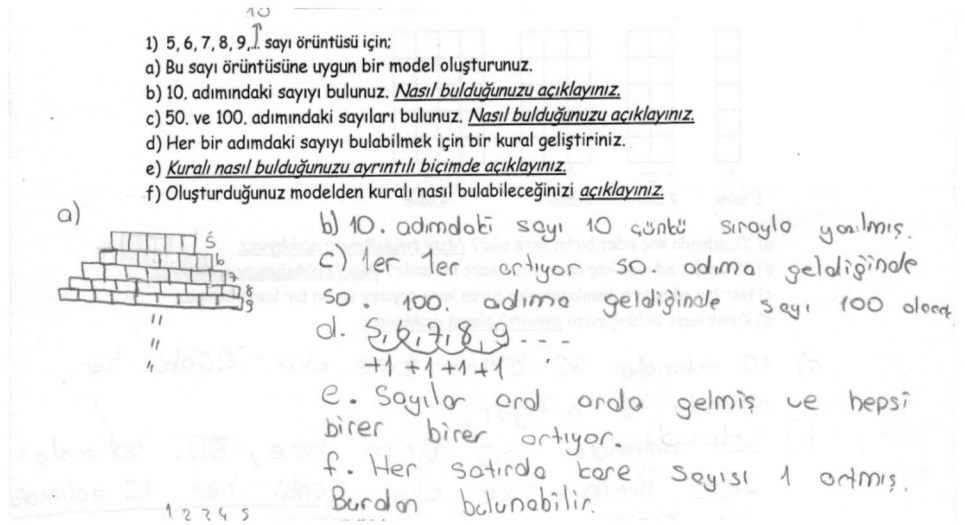 10
1) 5, 6, 7, 8, 9,... sayı örüntüsü için;
a) Bu sayı örüntüsüne uygun bir model oluşturunuz.
b) 10. adımındaki sayıyı bulunuz. Nasıl bulduğunuzu açıklayınız.
c) 50. ve 100. adımındaki sayıları bulunuz. Nasıl bulduğunuzu açıklayınız.
d) Her bir adımdaki sayıyı bulabilmek için bir kural geliştiriniz.
e) Kuralı nasıl bulduğunuzu ayrıntılı biçimde açıklayınız.
f) Oluşturduğunuz modelden kuralı nasıl bulabileceğinizi açıklayınız.
a)
5
6
8
9
"
"
"
b) 10. adımdaki sayı 10 çünkü sırayla yazılmış.
c) 1er 1er artıyor 50. adıma geldiğinde
50. 100. adıma geldiğinde sayı 100 olacak
d. 5, 6, 7, 8, 9 ---
+1 +1 +1 +1
e. Sayılar ard arda gelmiş ve hepsi
birer birer artıyor.
f. Her satırda kare sayısı 1 artmış.
Burdan bulunabilir.
1 2 3 4 5